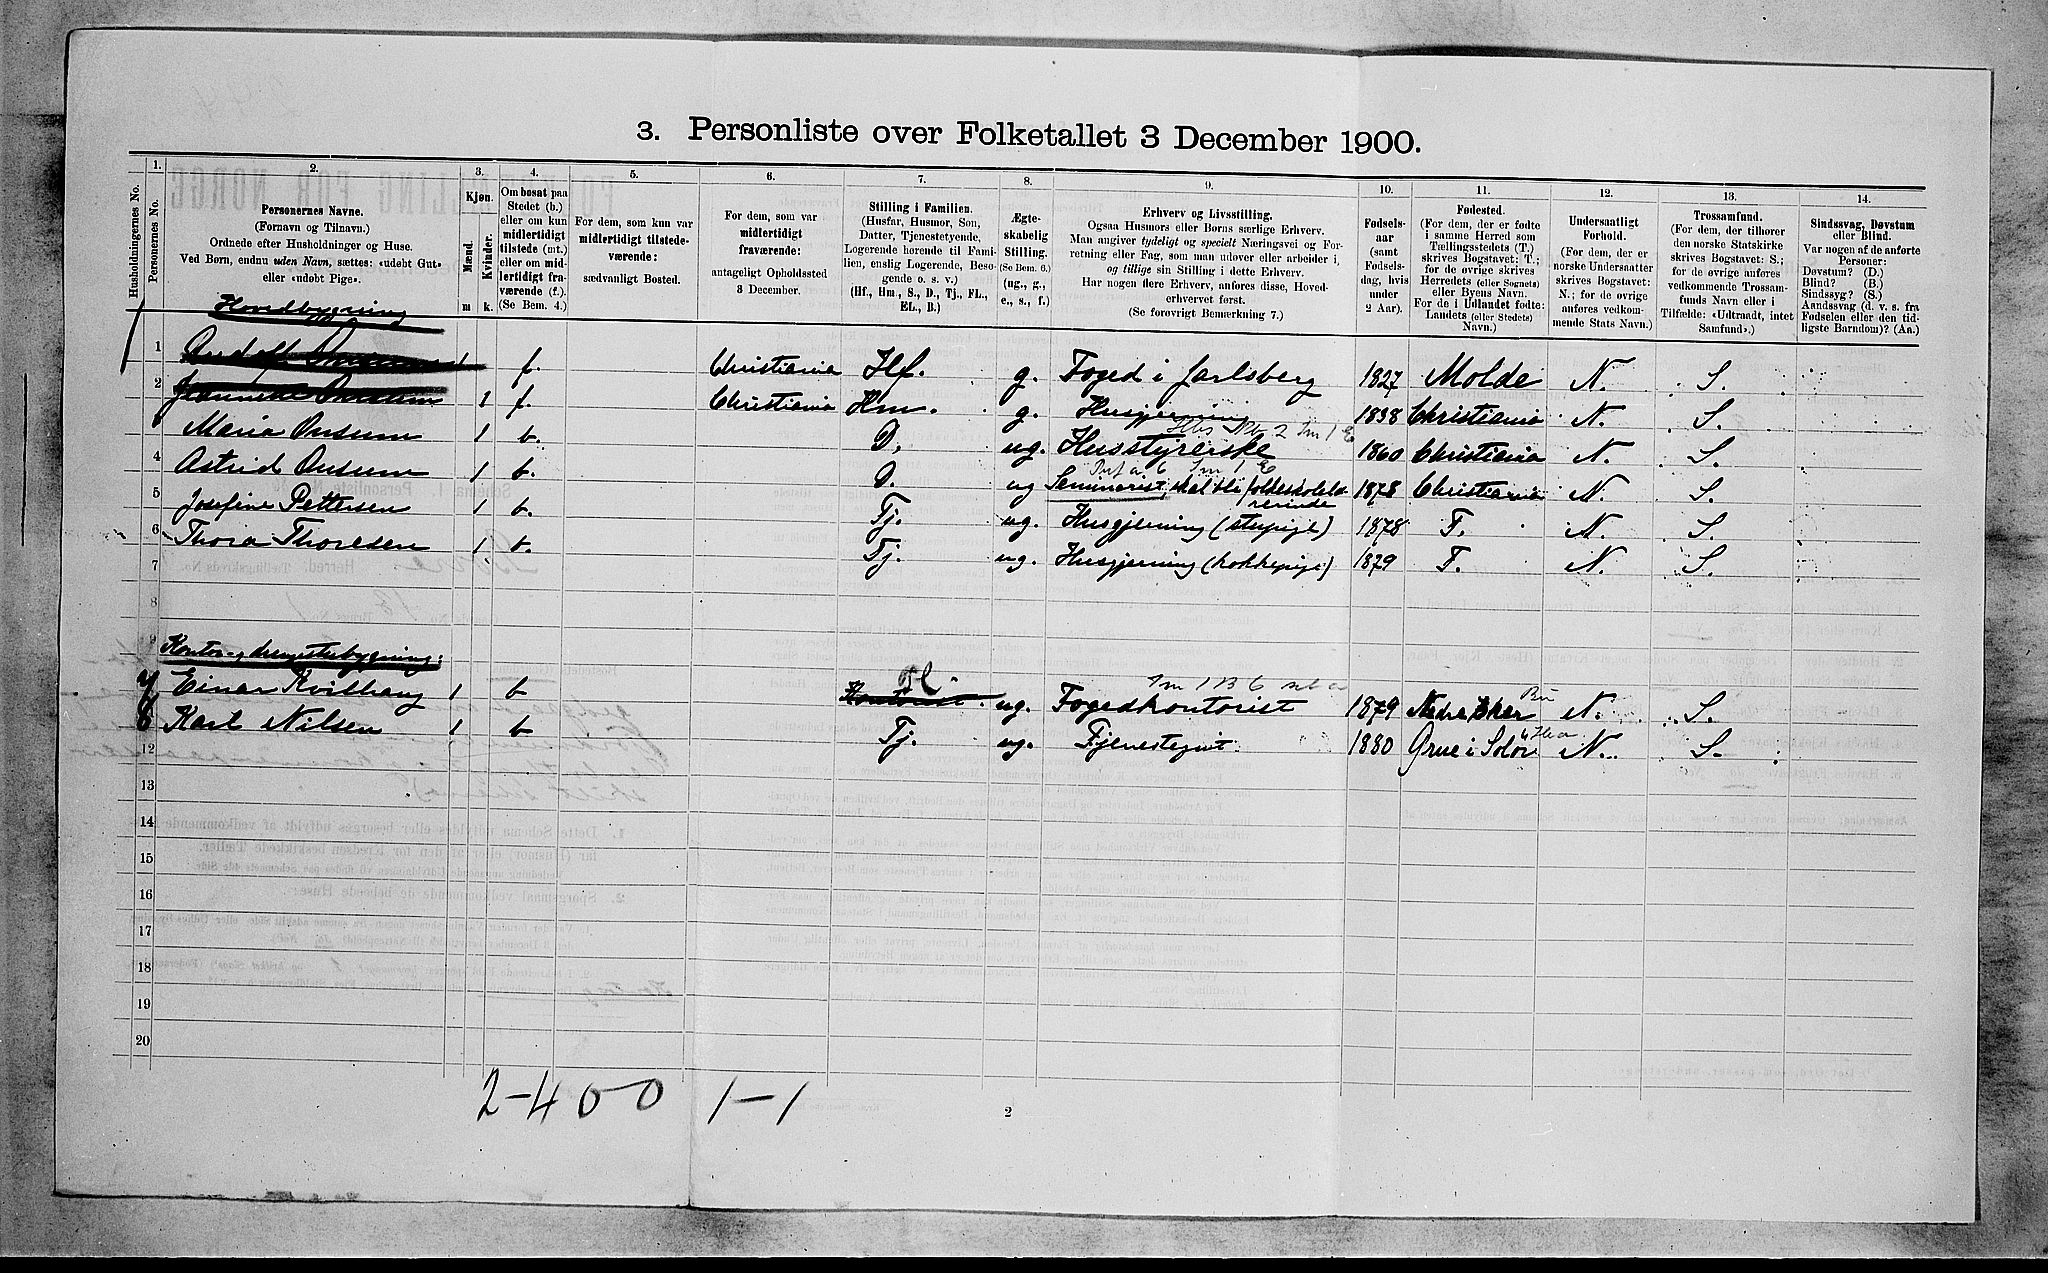 3. Personliste over Folketallet 3 December 1900.
1. 2. 3. 4. 5. 6. 7. 8. 9. 10. 11. 12. 13. 14.
Husholdningernes No.
Personernes No.
Personernes Navne.
(Fornavn og Tilnavn.)
Ordnede efter Husholdninger og Huse.
Ved Børn, endnu uden Navn, sættes: «udøbt Gut»
eller «udøbt Pige».
Kjøn.
Mænd.
Kvinder.
m k.
Om bosat paa
Stedet (b.)
eller om kun
midlertidigt
tilstede (mt.)
eller om mid-
lertidigt fra-
værende (f.).
(Se Bem. 4.)
For dem, som kun var
midlertidigt tilstede-
værende:
sædvanligt Bosted.
For dem, som var
midlertidigt
fraværende:
antageligt Opholdssted
3 December.
Stilling i Familien.
(Husfar, Husmor, Søn,
Datter, Tjenestetyende,
Logerende hørende til Fami-
lien, enslig Logerende, Besø-
gende o. s. v.)
(Hf., Hm., S., D., Tj., FL.,
EL., B.)
Ægte-
skabelig
Stilling.
(Se Bem. 6.)
(ug., g.,
e., s., f.)
Erhverv og Livsstilling.
Ogsaa Husmors eller Børns særlige Erhverv.
Man angiver tydeligt og specielt Næringsvei og For-
retning eller Fag, som man udøver eller arbeider i,
og tillige sin Stilling i dette Erhverv.
Har nogen flere Erhverv, anføres disse, Hoved-
erhvervet først.
(Se forøvrigt Bemærkning 7.)
Fødsels-
aar
(samt
Fødsels-
dag, hvis
under
2 Aar).
Fødested.
(For dem, der er fødte
i samme Herred som
Tællingsstedets (T.)
skrives Bogstavet: T.;
for de øvrige skrives
Herredets (eller Sognets)
eller Byens Navn.
For de i Udlandet fødte:
Landets (eller Stedets)
Navn.)
Undersaatligt
Forhold.
(For dem, der er
norske Undersaatter
skrives Bogstavet:
N.; for de øvrige
anføres vedkom-
mende Stats Navn.)
Trossamfund.
(For dem, der tilhører
den norske Statskirke
skrives Bogstavet: S.;
for de øvrige anføres
vedkommende Trossam-
funds Navn eller i
Tilfælde: «Udtraadt, intet
Samfund».)
Sindssvag, Døvstum
eller Blind.
Var nogen af de anførte
Personer:
Døvstum? (D.)
Blind? (B.)
Sindssyg? (S.)
Aandssvag (d. v. s. fra
Fødselen eller den tid-
ligste Barndom)? (Aa.)
Hovedbygning
1 Onsum 1 f. Christiania Hf. g. Foged i Jarlsberg 1827 Molde N. S.
2 Jeannette Onsum 1 f. Christiania Hm. g. Husgjerning 1838 Christiania N. S.
Maria Onsum 1 b. D. ug. Husstyrerske 1860 Christiania N. S.
4 Astrid Onsum 1 b. D. ug Seminarist, skal bli folkeskolelæ 1878 Christiania N. S.
rerinde
5 Josefine Pettersen 1 b. Tj. ug. Husgjerning (stupige) 1878 T. N. S.
6 Thora Thoresen 1 b. Tj. ug. Husgjerning (kokkepige) 1879 T. N. S.
7
8
9 Kontor og drengestubygning:
7 Einar Kvilhaug 1 b Kontorist. ug. Fogedkontorist 1879 Nedre Eker Bu N. S.
8 Karl Nilsen 1 b Tj. ug. Tjenestegut 1880 Grue i Solør N. S.
12
13
14
15
16
17
18
19
20
2-400 1-1
2